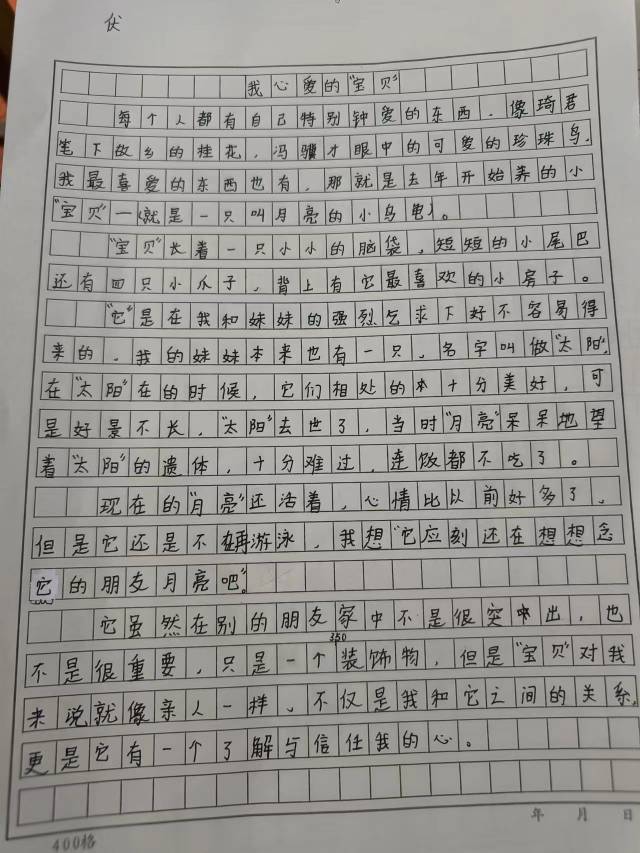 伏
我心爱的“宝贝”
每个人都有自己特别钟爱的东西，像琦君
笔下故乡的桂花，冯骥才眼中的可爱的珍珠鸟，
我最喜爱的东西也有，那就是去年开始养的小
“宝贝”一就是一只叫月亮的小乌龟。
“宝贝”长着一只小小的脑袋，短短的小尾巴
还有四只小爪子，背上有它最喜欢的小房子。
“它”是在我和妹妹的强烈乞求下好不容易得
来的，我的妹妹本来也有一只，名字叫做“太阳”，
在“太阳”在的时候，它们相处的十分美好，可
是好景不长，“太阳”去世了，当时“月亮”呆呆地望
着“太阳”的遗体，十分难过，连饭都不吃了。
现在的“月亮”还活着，心情比以前好多了，
但是它还是不再游泳，我想“它应刻还在想想念
它的朋友月亮吧”。
它虽然在别的朋友家中不是很突出，也
350
不是很重要，只是一个装饰物，但是“宝贝”对我
来说就像亲人一样，不仅是我和它之间的关系，
更是它有一个了解与信任我的心。
400格
年 月 日